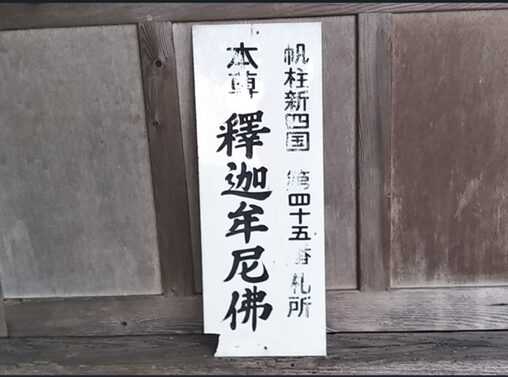 帆柱新四国 第四十五番札所
本尊 釋迦牟尼佛